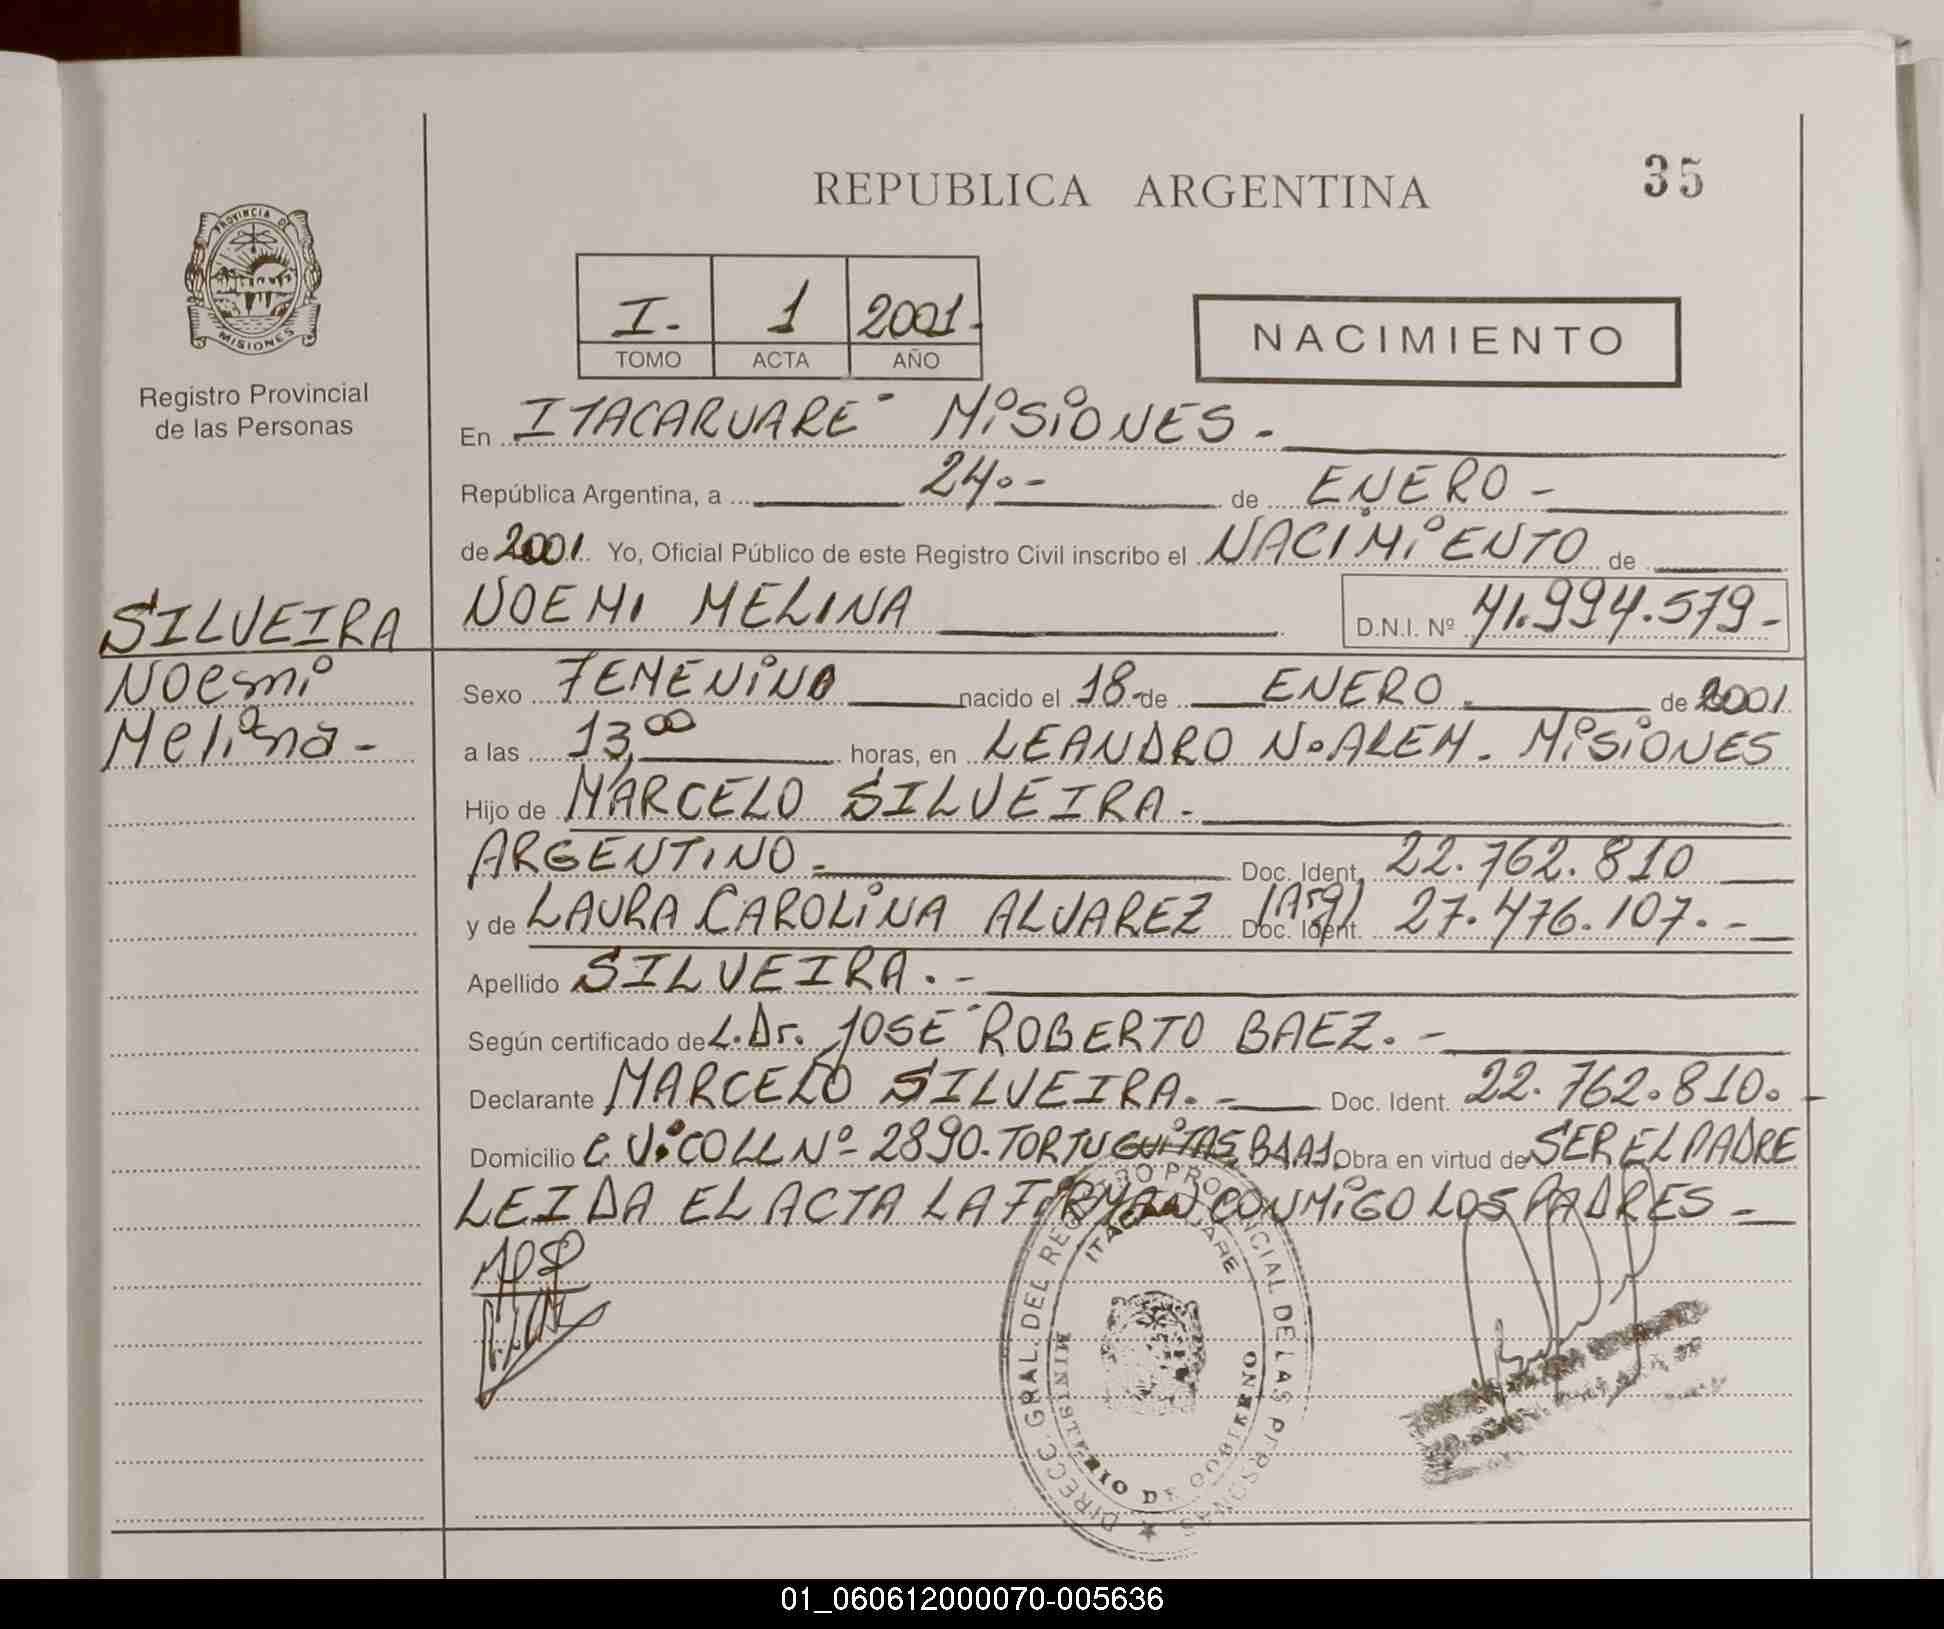 REPUBLICA ARGENTINA
35
PROVINCIA DE
MISIONES
Registro Provincial
de las Personas
I. 1 2001.
TOMO ACTA AÑO
NACIMIENTO
En ITACARUARE MISIONES -
República Argentina, a 24.- de ENERO -
de 2001. Yo, Oficial Público de este Registro Civil inscribo el NACIMIENTO de
NOEMI MELINA D.N.I. Nº 41.994.579-
SILVEIRA
Noemi
Melina -
Sexo FEMENINO nacido el 18 de ENERO de 2001
a las 13,00 horas, en LEANDRO N. ALEM. MISIONES
Hijo de MARCELO SILVEIRA -
ARGENTINO - Doc. Ident. 22.762.810
y de LAURA CAROLINA ALVAREZ (Arg) Doc. Ident. 27.476.107.-
Apellido SILVEIRA.-
Según certificado de L. Dr. JOSE ROBERTO BAEZ.-
Declarante MARCELO SILVEIRA.- Doc. Ident. 22.762.810.-
Domicilio C. V. COLL Nº 2890. TORTUGUITAS, Obra en virtud de SER EL PADRE
LEIDA EL ACTA LA FIRMAN CONMIGO LOS PADRES -
DIRECC. GRAL. DEL REGISTRO PROVINCIAL DE LAS PERSONAS
ITACARUARE
MINISTERIO DE GOBIERNO
01_060612000070-005636